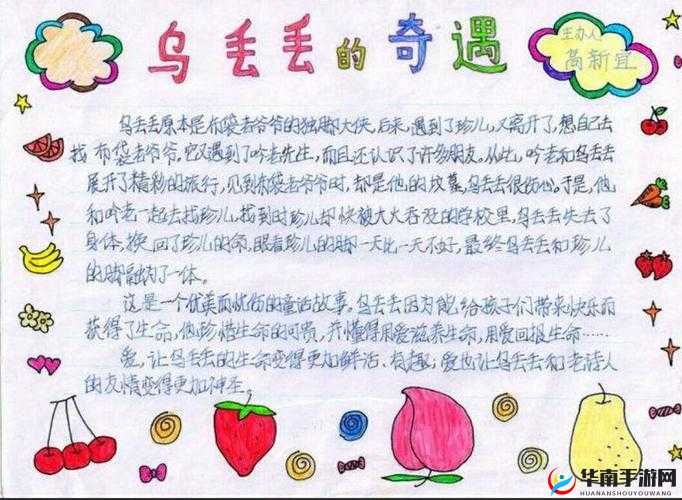 乌丢丢的奇遇
主办人
高新宜
乌丢丢原本是布袋老爷爷的独脚大侠,后来,遇到了珍儿,又离开了,想自己去
找布袋老爷爷,它又遇到了吟老先生,而且还认识了许多朋友。从此,吟老和乌丢丢
展开了精彩的旅行,见到布袋老爷爷时,却是他的坟墓,乌丢丢很伤心。于是,他
和吟老一起去找珍儿,找到时珍儿却快被大火吞没的学校里,乌丢丢失去了
身体,换回了珍儿的命,眼看珍儿的脚一天比一天不好,最终乌丢丢和珍儿
的脚融为了一体。
这是一个优美而忧伤的童话故事。乌丢丢因为能给孩子们带来快乐而
获得了生命,他珍惜生命的可贵,并懂得用爱滋养生命,用爱回报生命……
爱,让乌丢丢的生命变得更加鲜活、有趣;爱也让乌丢丢和老诗人
的友情变得更加神圣。
华南手游网
HUANANSHOUYOUWANG